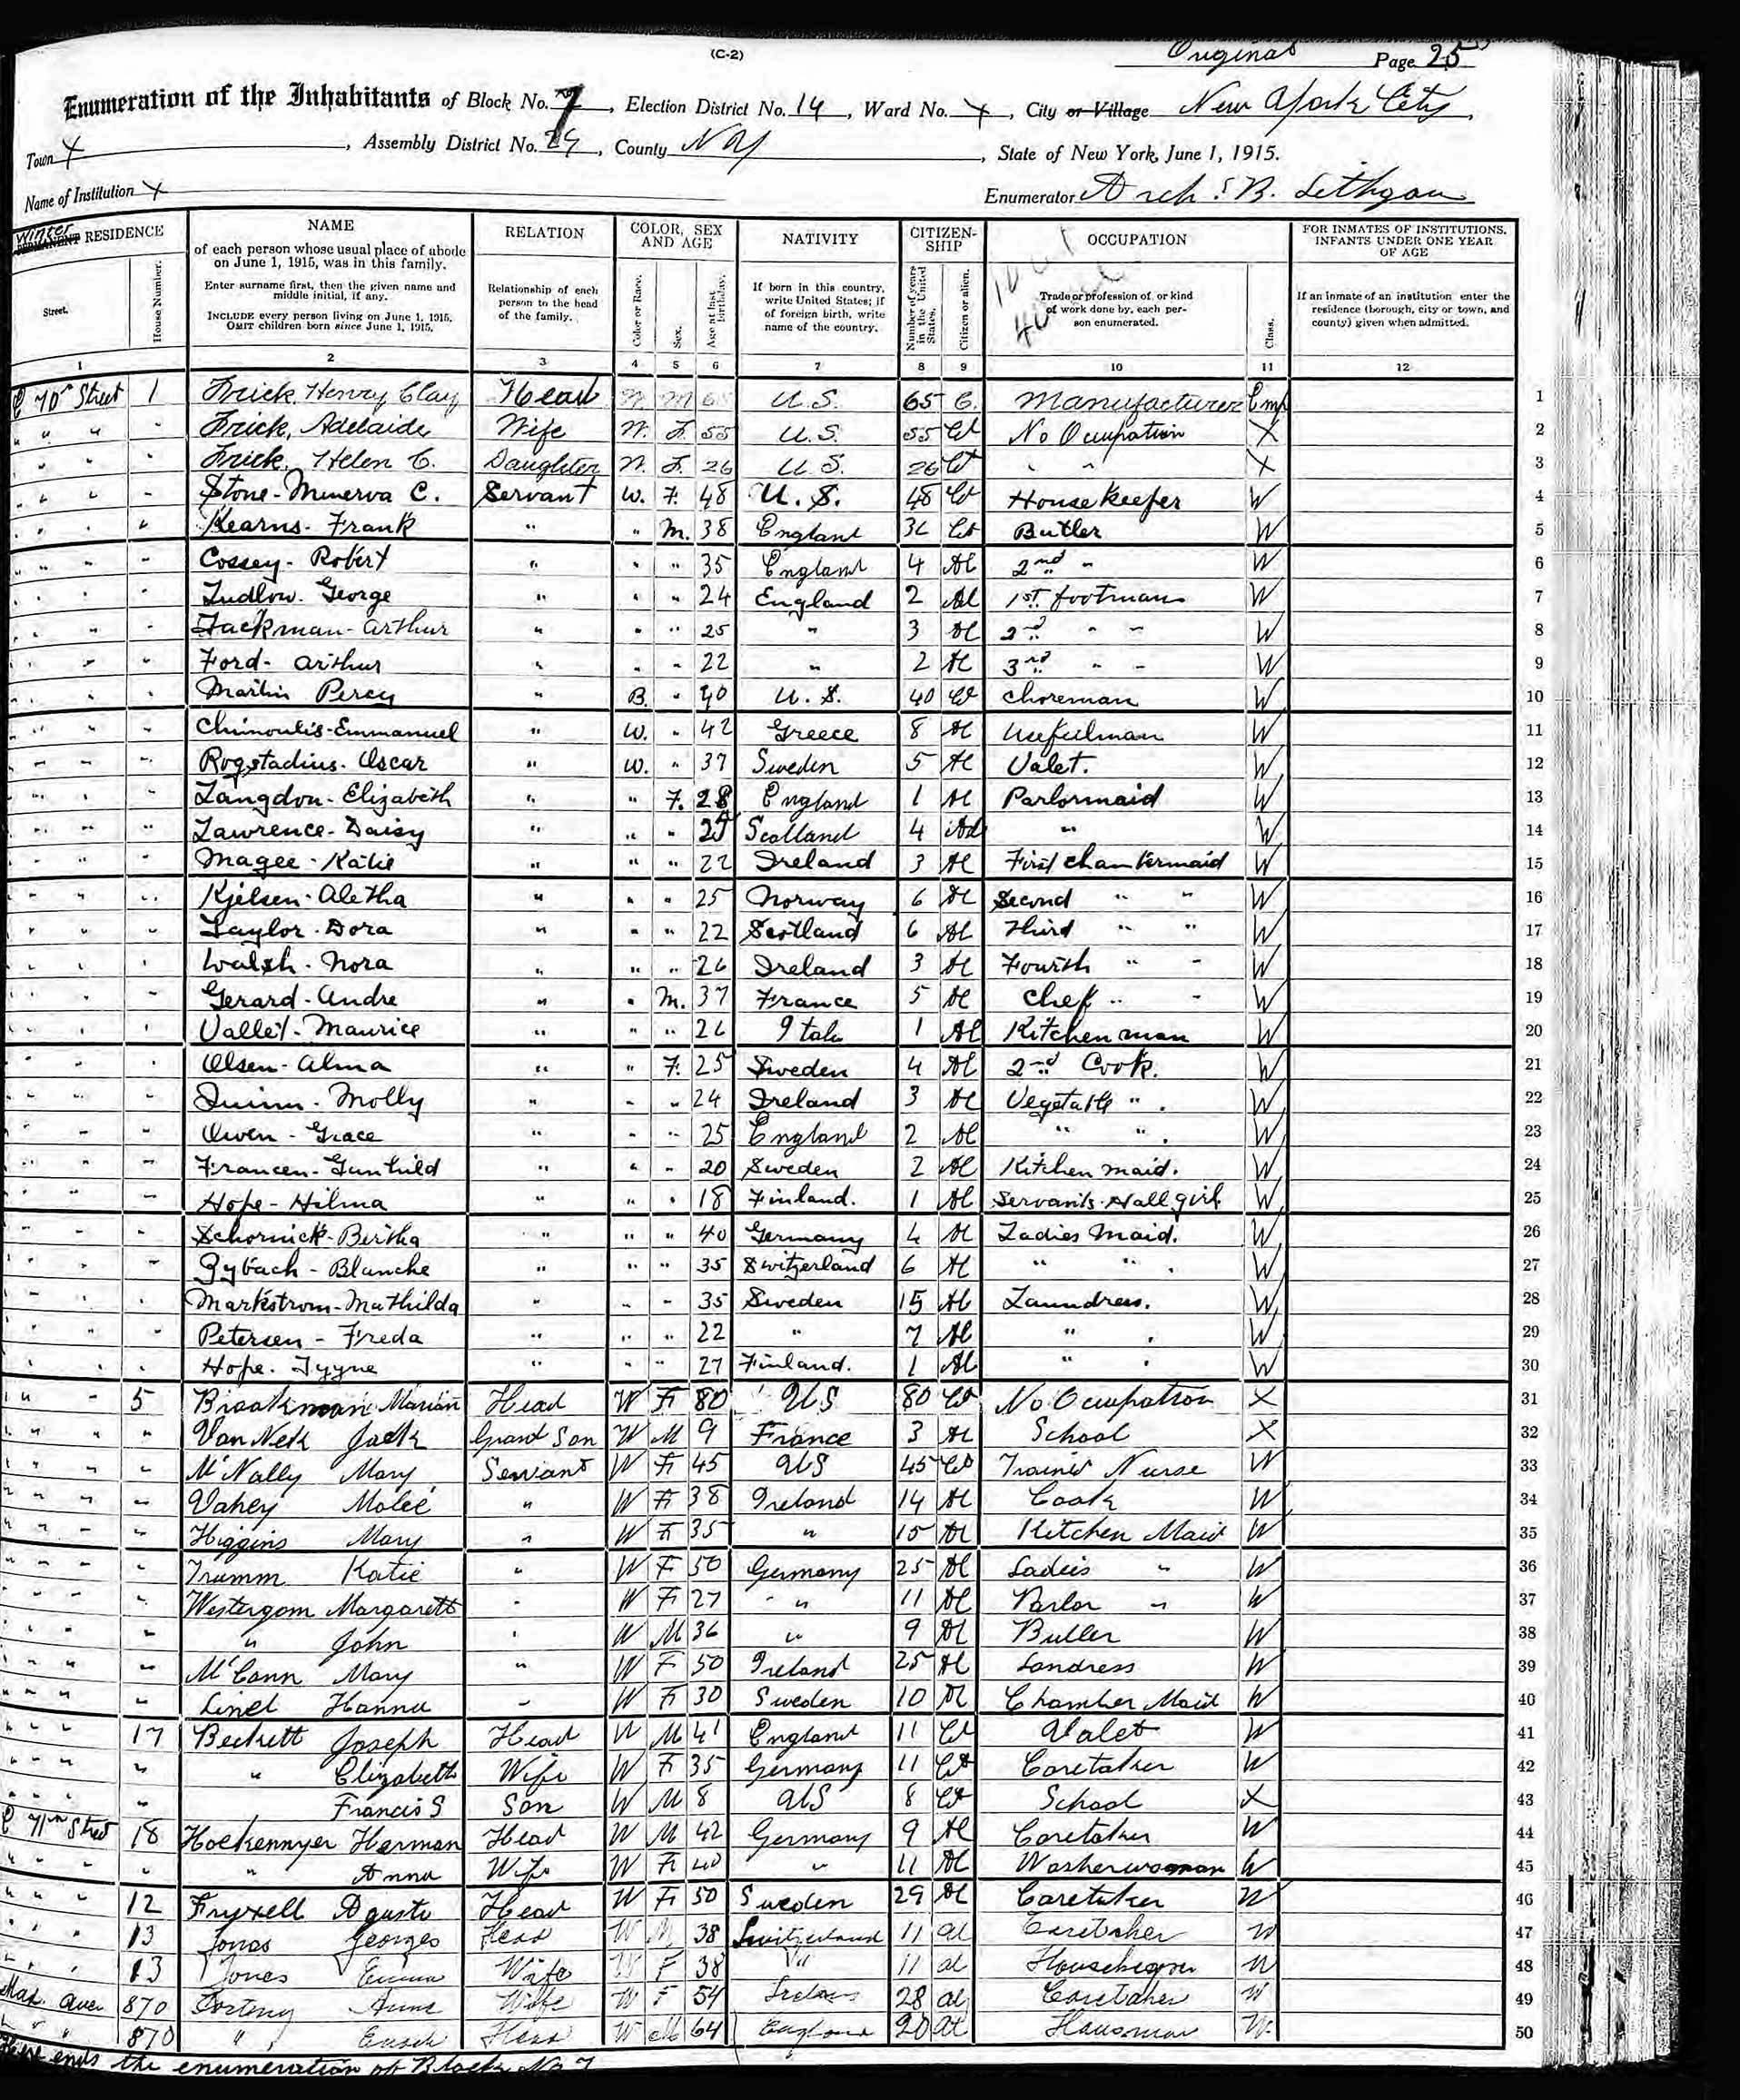 (C-2)
Original Page 25
Enumeration of the Inhabitants of Block No. 7, Election District No. 14, Ward No. X, City or Village New York City,
Town X, Assembly District No. 29, County N Y, State of New York, June 1, 1915.
Name of Institution X Enumerator Arch. B. Lithgow
Winter PERMANENT RESIDENCE NAME RELATION COLOR, SEX AND AGE NATIVITY CITIZEN-SHIP OCCUPATION FOR INMATES OF INSTITUTIONS. INFANTS UNDER ONE YEAR OF AGE
Street. House Number. of each person whose usual place of abode on June 1, 1915, was in this family. Enter surname first, then the given name and middle initial, if any. INCLUDE every person living on June 1, 1915. OMIT children born since June 1, 1915. Relationship of each person to the head of the family. Color or Race. Sex. Age at last birthday. If born in this country, write United States; if of foreign birth, write name of the country. Number of years in the United States. Citizen or alien. Trade or profession of, or kind of work done by, each person enumerated. Class. If an inmate of an institution enter the residence (borough, city or town, and county) given when admitted.
1 2 3 4 5 6 7 8 9 10 11 12
E 70" Street 1 Frick, Henry Clay Head W M 65 U.S. 65 C. Manufacturer Emp 1
" " " " Frick, Adelaide Wife W. F. 55 U.S. 55 Ct No Occupation X 2
" " " " Frick, Helen C. Daughter W. F. 26 U.S. 26 Ct " " X 3
" " " " Stone - Minerva C. Servant W. F. 48 U.S. 48 Ct House Keeper W 4
" " " " Kearns - Frank " " M. 38 England Ct Butler W 5
" " " " Cossey - Robert " " " 35 England 4 Al 2nd " W 6
" " " " Ludlow. George " " " 24 England 2 Al 1st footman W 7
" " " " Jackman - Arthur " " " 25 " 3 Al 2nd " " W 8
" " " " Ford - Arthur " " " 22 " 2 Al 3rd " " W 9
" " " " Martin Percy " B. " 40 U.S. 40 Ct Choreman W 10
" " " " Chimoulis - Emmanuel " W. " 42 Greece 8 Al Usefulman W 11
" " " " Rogstadius - Oscar " W. " 37 Sweden 5 Al Valet. W 12
" " " " Langdon - Elizabeth " " F. 28 England 1 Al Parlormaid W 13
" " " " Lawrence - Daisy " " " 25 Scotland 4 Al " W 14
" " " " Magee - Katie " " " 22 Ireland 3 Al First chambermaid W 15
" " " " Kjelsen - Aletha " " " 25 Norway 6 Al Second " " W 16
" " " " Taylor - Dora " " " 22 Scotland 6 Al Third " " W 17
" " " " Walsh - Nora " " " 26 Ireland 3 Al Fourth " " W 18
" " " " Gerard - Andre " " M. 37 France 5 Al Chef " " W 19
" " " " Vallet - Maurice " " " 26 Italy 1 Al Kitchen man W 20
" " " " Olsen - Alma " " F. 25 Sweden 4 Al 2nd Cook. W 21
" " " " Quinn - Molly " " " 24 Ireland 3 Al Vegetable " . W 22
" " " " Owen - Grace " " " 25 England 2 Al " " . W 23
" " " " Francen - Gunhild " " " 20 Sweden 2 Al Kitchen maid. W 24
" " " " Hope - Hilma " " " 18 Finland. 1 Al Servants Hall girl W 25
" " " " Schornick - Bertha " " " 40 Germany 4 Al Ladies Maid. W 26
" " " " Gybach - Blanche " " " 35 Switzerland 6 Al " " . W 27
" " " " Markstrom - Mathilda " " " 35 Sweden 15 Al Laundress. W 28
" " " " Petersen - Freda " " " 22 " 7 Al " . W 29
" " " " Hope. Tyyne " " " 27 Finland. 1 Al " . W 30
" " 5 Brookman Marian Head W F 80 US 80 Ct No Occupation X 31
" " " " Van Neck Jack Grand Son W M 9 France 3 Al School X 32
" " " " McNally Mary Servant W F 45 US 45 Ct Trained Nurse W 33
" " " " Vahey Molie " W F 38 Ireland 14 Al Cook W 34
" " " " Higgins Mary " W F 35 " 15 Al Kitchen Maid W 35
" " " " Trumm Katie " W F 50 Germany 25 Al Ladies " W 36
" " " " Westergom Margarett " W F 27 " 11 Al Parlor " W 37
" " " " " John " W M 36 " 9 Al Butler W 38
" " " " McCann Mary " W F 50 Ireland 25 Al Landress W 39
" " " " Linel Hanna " W F 30 Sweden 10 Al Chamber Maid W 40
" " " 17 Beckett Joseph Head W M 41 England 11 Ct Valet W 41
" " " " " Elizabeth Wife W F 35 Germany 11 Ct Caretaker W 42
" " " " Francis S Son W M 8 US 8 Ct School X 43
E 71st Street 18 Hockemyer Herman Head W M 42 Germany 9 Al Caretaker W 44
" " " " " Anna Wife W F 40 " 11 Al Washerwoman W 45
" " " 12 Fryxell Agusta Head W F 50 Sweden 29 Al Caretaker W 46
" " " 13 Jonas Georges Head W M 38 Switzerland 11 al Caretaker W 47
" " " 13 Jones Emma Wife W F 38 " 11 al W 48
Mad. Aven 870 Anna Wife W F 54 Ireland 28 al Caretaker W 49
" " 870 " Head W M 64 England 20 al Houseman W. 50
Here ends the enumeration of Block No 7